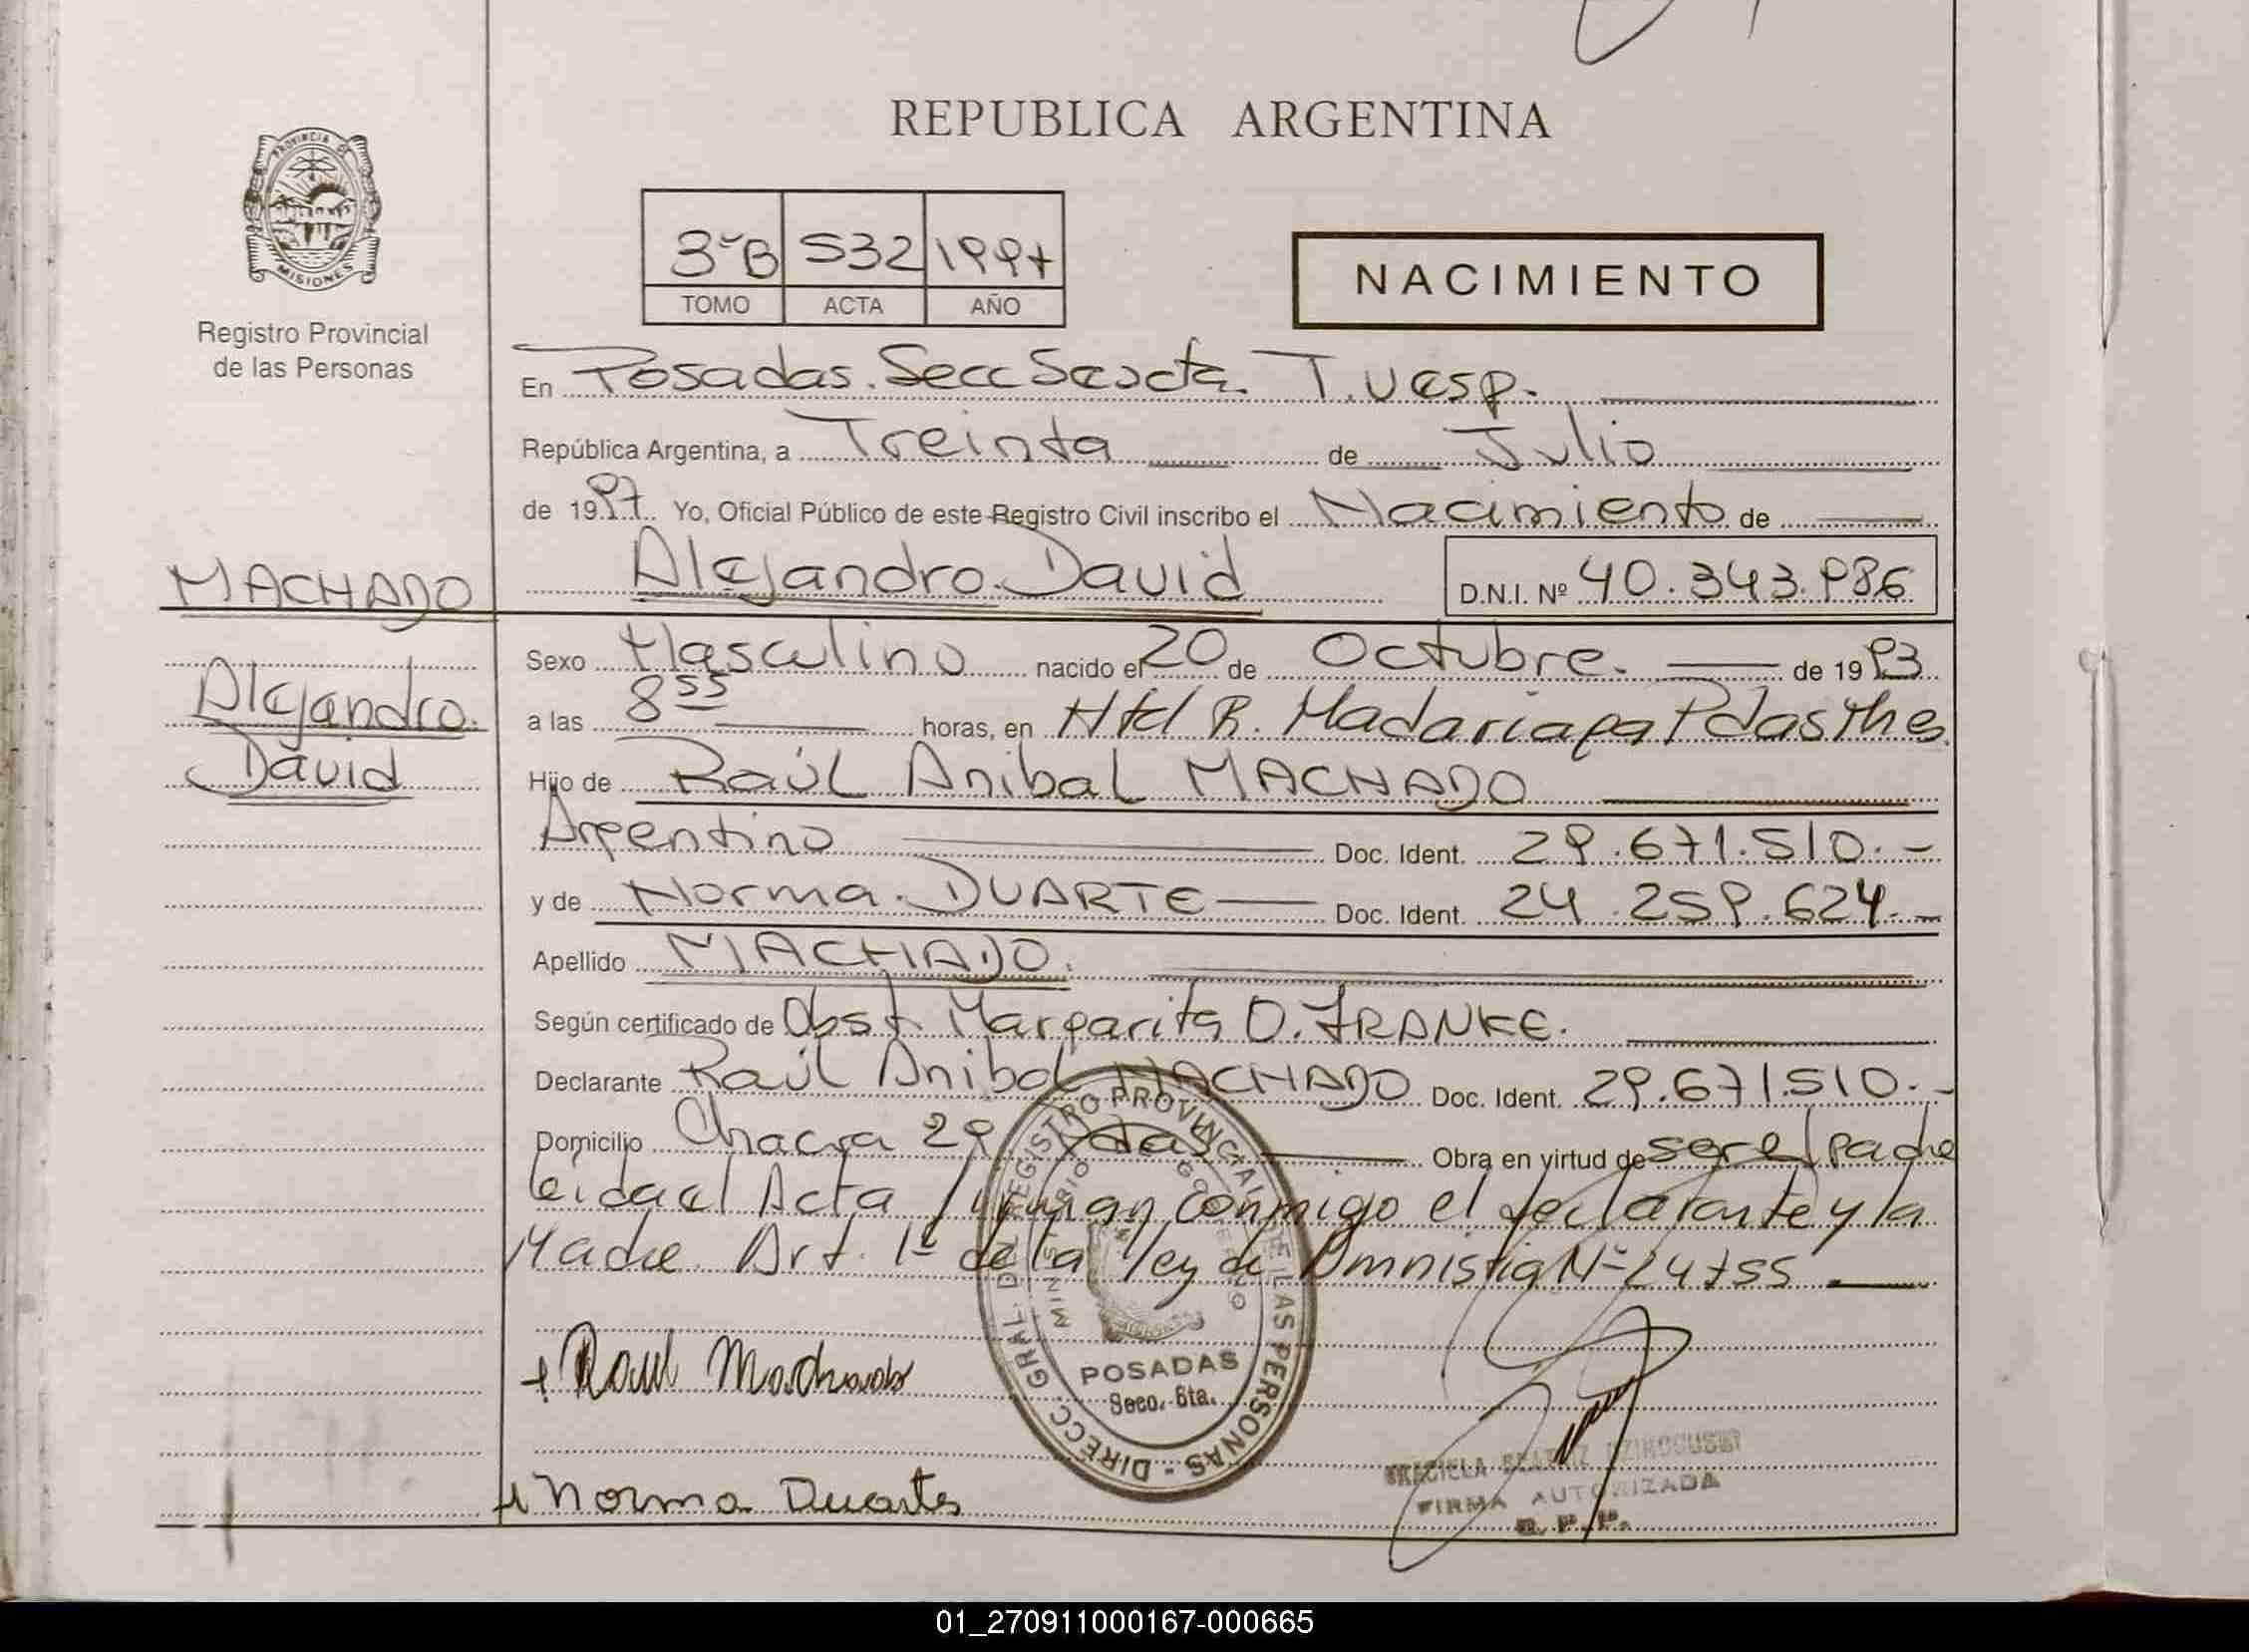 REPUBLICA ARGENTINA
PROVINCIA DE
MISIONES
Registro Provincial
de las Personas
3ºB 532 1997
TOMO ACTA AÑO
NACIMIENTO
En Posadas. Secc Sexta. T. Vesp.
República Argentina, a Treinta de Julio
de 1997 Yo, Oficial Público de este Registro Civil inscribo el Nacimiento de
MACHADO
Alejandro David
Alejandro David D.N.I. Nº 40.343.986
Sexo Masculino nacido el 20 de Octubre. de 1993
a las 8 55 horas, en Htal R. Madariaga Pdas Mnes
Hijo de Raúl Anibal MACHADO
Argentino Doc. Ident. 29.671.510.-
y de Norma. DUARTE Doc. Ident. 24.259.624.-
Apellido MACHADO.
Según certificado de Obst. Margarita O. FRANKE.
Declarante Raúl Anibal MACHADO Doc. Ident. 29.671.510.-
Domicilio Chacra 29 Pdas Obra en virtud de ser el padre
Leida el Acta firman conmigo el declarante y la
Madre. Art. 1º de la ley de Amnistia Nº 24755
Raul Machado
Norma Duarte
DIRECC. GRAL. DEL REGISTRO PROVINCIAL DE LAS PERSONAS -
MINISTERIO DE GOBIERNO
POSADAS
Secc. 6ta.
GRACIELA BEATRIZ
FIRMA AUTORIZADA
R. P. P.
01_270911000167-000665